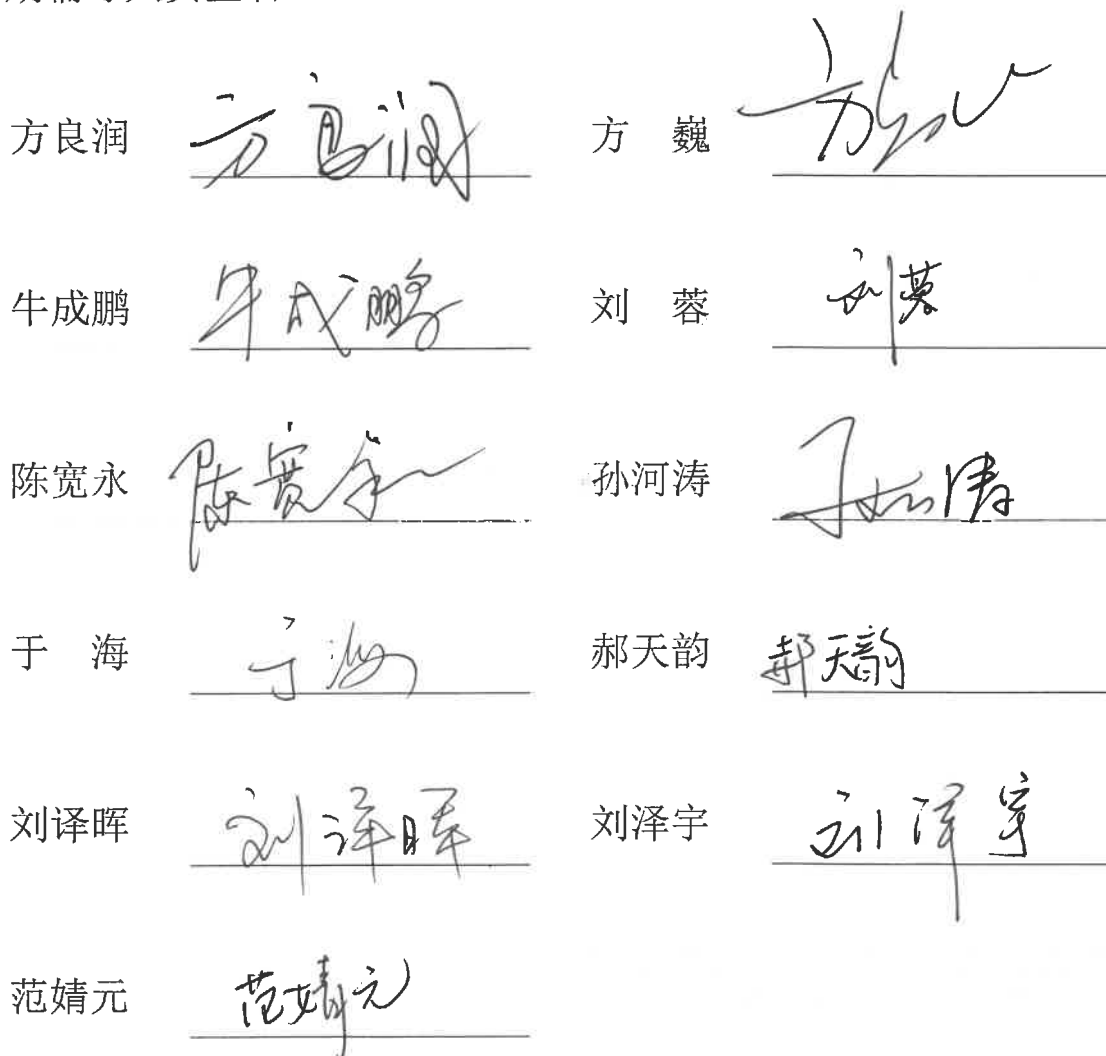 方良润 方良润 方　巍 方巍
牛成鹏 牛成鹏 刘　蓉 刘蓉
陈宽永 陈宽永 孙河涛 孙河涛
于　海 于海 郝天韵 郝天韵
刘译晖 刘译晖 刘泽宇 刘泽宇
范婧元 范婧元